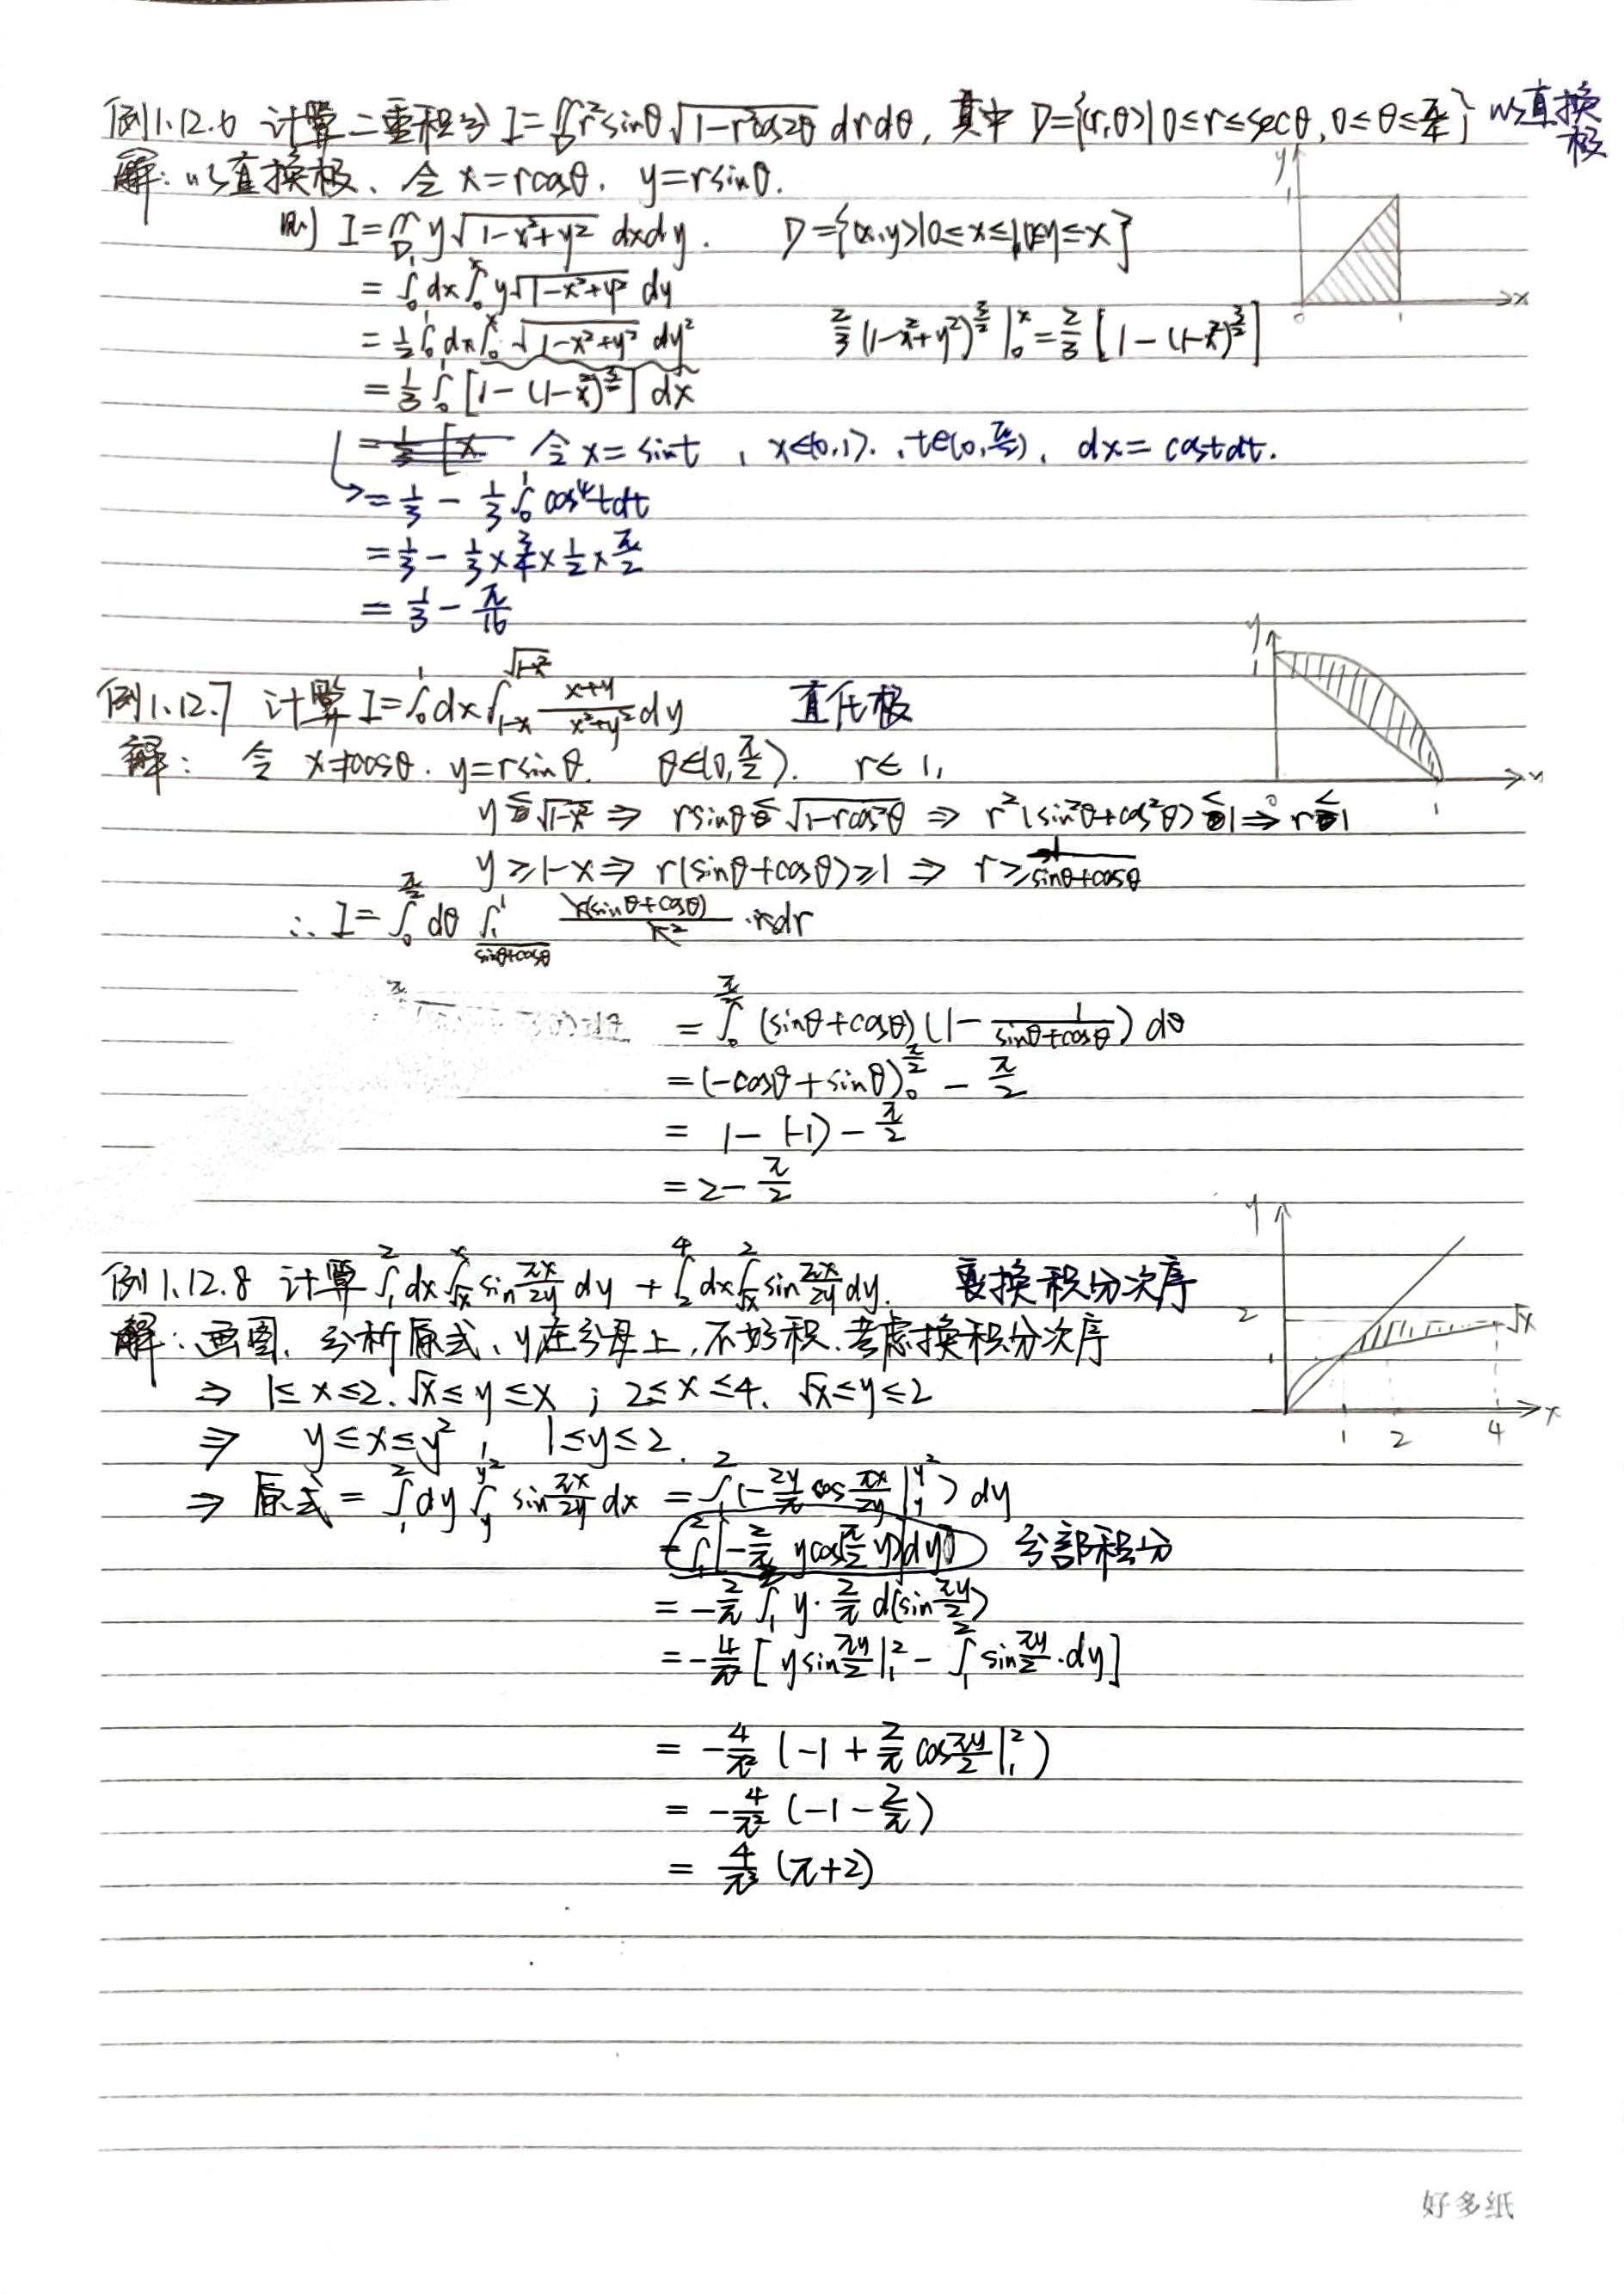 例1.12.6 计算二重积分 I=∬_D r²sinθ√(1-r²cos2θ) drdθ, 其中 D={(r,θ)|0≤r≤secθ, 0≤θ≤π/4} 以直换极
解: 以直换极、令 x=rcosθ. y=rsinθ.
则 I=∬_D y√(1-x²+y²) dxdy. D={(x,y)|0≤x≤1,0≤y≤x}
= ∫₀¹dx∫₀ˣ y√(1-x²+y²) dy
= 1/2 ∫₀¹ dx∫₀ˣ √(1-x²+y²) dy² 2/3 (1-x²+y²)^(3/2) |₀ˣ = 2/3 [1-(1-x²)^(3/2)]
= 1/3 ∫₀¹ [1-(1-x²)^(3/2)] dx
令 x=sint , x∈(0,1). , t∈(0,π/2), dx=costdt.
= 1/3 - 1/3 ∫₀¹ cos⁴tdt
= 1/3 - 1/3 × 3/4 × 1/2 × π/2
= 1/3 - π/16
例1.12.7 计算 I=∫₀¹dx∫_{1-x}^{√(1-x²)} (x+y)/(x²+y²) dy 直化极
解: 令 x=rcosθ. y=rsinθ. θ∈(0,π/2). r≤1,
y≤√(1-x²) ⇒ rsinθ≤√(1-rcos²θ) ⇒ r²(sin²θ+cos²θ)≤1 ⇒ r≤1
y≥1-x ⇒ r(sinθ+cosθ)≥1 ⇒ r≥1/(sinθ+cosθ)
∴ I=∫₀^{π/2} dθ ∫_{1/(sinθ+cosθ)}^1 r(sinθ+cosθ)/r² ·rdr
= ∫₀^{π/2} (sinθ+cosθ)(1-1/(sinθ+cosθ)) dθ
= (-cosθ+sinθ)₀^{π/2} - π/2
= 1-(-1)-π/2
= 2-π/2
例1.12.8 计算∫₁²dx∫_{√x}^x sin πx/2y dy + ∫₂⁴dx∫_{√x}^2 sin πx/2y dy. 更换积分次序
解: 画图、分析原式、y在分母上,不好积.考虑换积分次序
⇒ 1≤x≤2. √x≤y≤x ; 2≤x≤4. √x≤y≤2
⇒ y≤x≤y² , 1≤y≤2.
⇒ 原式 = ∫₁²dy∫_y^{y²} sin πx/2y dx = ∫₁²(-2y/π cos πx/2y |_y^{y²}) dy
= ∫₁²[-2/π ycos(π/2 y)dy] 分部积分
= -2/π ∫₁² y·2/π d(sin πy/2)
= -4/π² [ysin πy/2 |₁² - ∫₁² sin πy/2 ·dy]
= -4/π² (-1+2/π cos πy/2 |₁²)
= -4/π² (-1-2/π)
= 4/π³ (π+2)
y
1
0
1
x
y
1
0
1
x
y
2
1
√x
1
2
4
x
好多纸